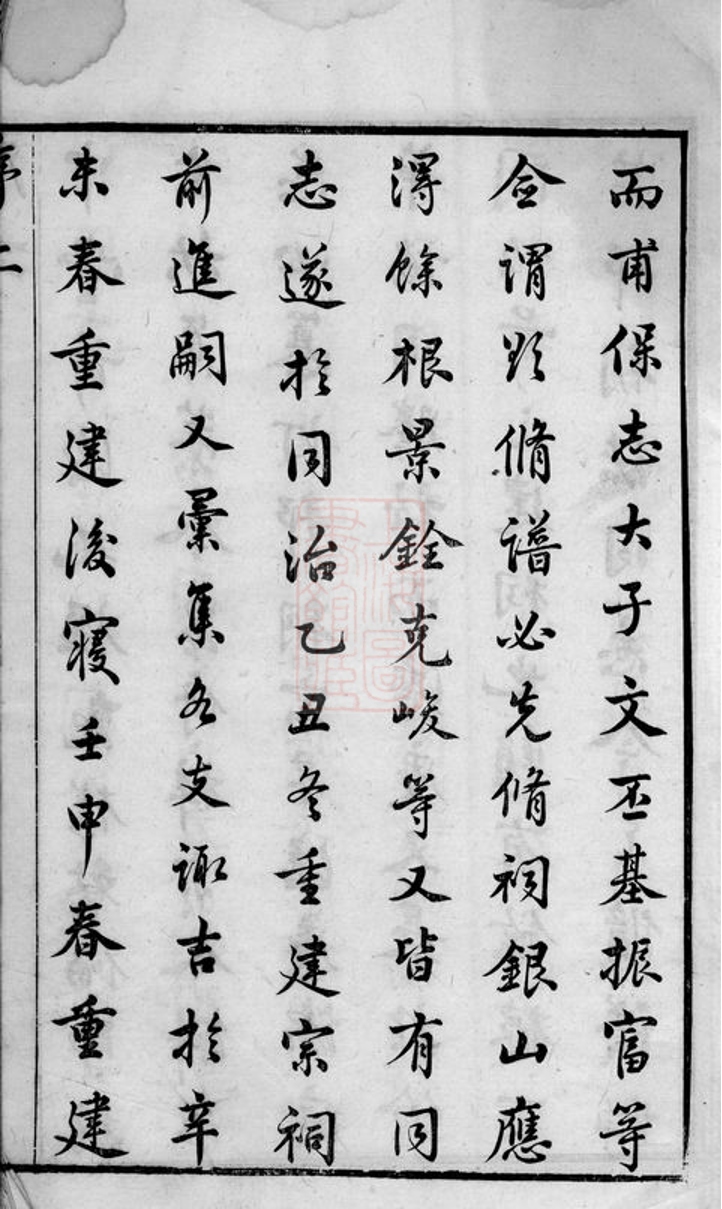 而甫保志大子文丕基振富等
僉謂欲脩譜必先脩祠銀山應
淂餘根景銓克峻等又皆有同
志遂於同治乙丑冬重建宗祠
前進嗣又彙集各支諏吉於辛
未春重建後寢壬申春重建
序 二